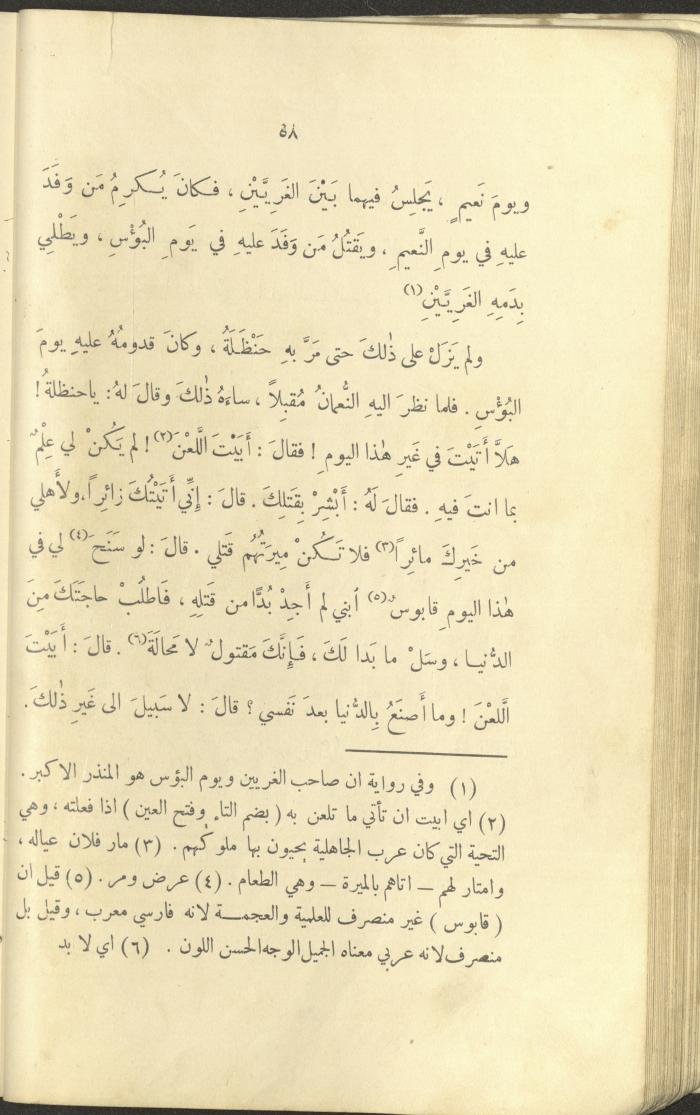 ٥٨
ويومَ نَعيمٍ ، يَجلِسُ فيهِما بَيْنَ الغَرِيَّيْنِ ، فكانَ يُكرِمُ مَن وَفَدَ
عليهِ في يومِ النَّعيمِ ، ويَقتُلُ مَن وَفَدَ عليهِ في يَومِ البُؤْسِ ، ويَطْلِي
بِدَمِهِ الغَرِيَّيْنِ(١)
ولم يَزَلْ على ذٰلكَ حتى مَرَّ بهِ حَنْظَلَةُ ، وكانَ قدومُهُ عليهِ يومَ
البُؤْسِ . فلما نظرَ اليهِ النُّعمانُ مُقبِلاً ، ساءَهُ ذٰلكَ وقالَ لهُ: ياحنظلةُ !
هَلاَّ أَتَيْتَ في غَيرِ هٰذا اليومِ ! فقالَ : أَبَيْتَ اللَّعْنَ(٢) ! لم يَكُنْ لي عِلْمٌ
بما انتَ فيهِ . فقالَ لَهُ : أَبْشِرْ بِقَتلِكَ . قالَ : إِنِّي أَتَيْتُكَ زائِراً،ولأَهلي
من خَيرِكَ مائِراً(٣) فلا تَكُنْ مِيرَتُهُم قَتلي . قالَ : لو سَنَحَ(٤) لي في
هٰذا اليومِ قابوسٌ(٥) اُبني لم أَجِدْ بُدًّا من قَتلِهِ ، فَاطلُبْ حاجَتَكَ مِنَ
الدُّنيا ، وسَلْ ما بَدا لَكَ ، فَإِنَّكَ مَقتولٌ لا مَحالَةَ(٦) . قالَ : أَبَيْتَ
اللَّعْنَ ! وما أَصنَعُ بِالدُّنيا بعدَ نَفسي ؟ قالَ : لا سَبيلَ الى غَيرِ ذٰلكَ.
(١) وفي رواية ان صاحب الغريين ويوم البؤس هو المنذر الاكبر .
(٢) اي ابيت ان تأتي ما تلعن به ( بضم التاء وفتح العين ) اذا فعلته ، وهي
التحية التي كان عرب الجاهلية يحيون بها ملوكهم . (٣) مار فلان عياله ،
وامتار لهم – اتاهم بالميرة – وهي الطعام . (٤) عرض ومر . (٥) قيل ان
( قابوس ) غير منصرف للعلمية والعجمة لانه فارسي معرب ، وقيل بل
منصرف لانه عربي معناه الجميل الوجه الحسن اللون . (٦) اي لا بد